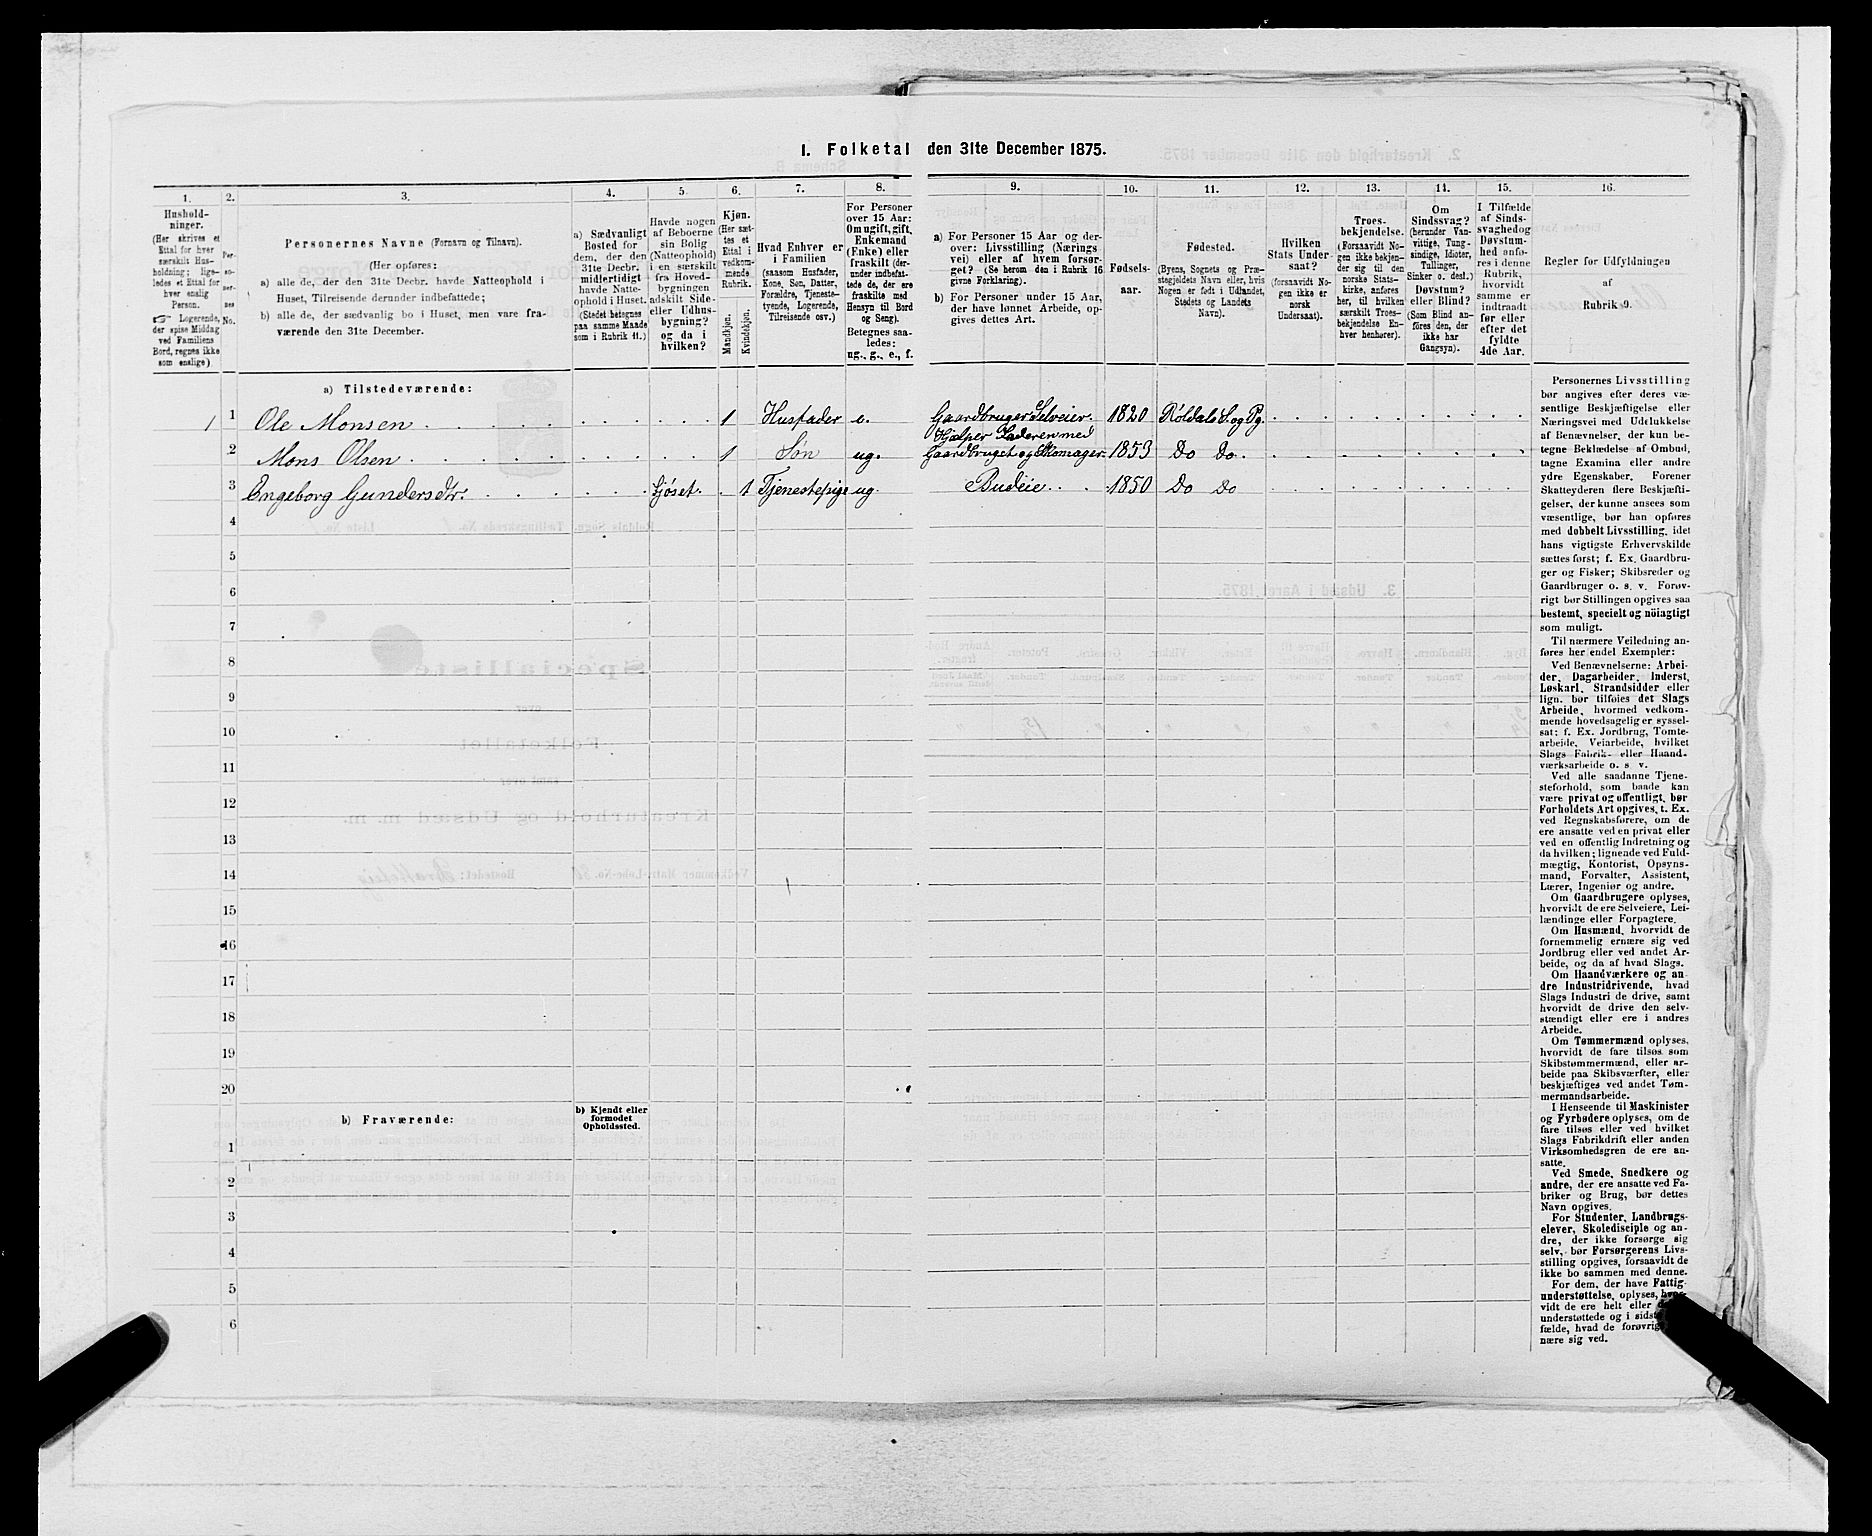 I. Folketal den 31te December 1875.
1. 2. 3. 4. 5. 6. 7. 8. 9. 10. 11. 12. 13. 14. 15. 16.
Hushold-
ninger.
(Her skrives et
Ettal for hver
særskilt Hus-
holdning; lige-
ledes et Ettal for
hver enslig
Person.
☞ Logerende,
der spise Middag
ved Familiens
Bord, regnes ikke
som enslige)
Per-
so-
ner-
nes
No.
Personernes Navne (Fornavn og Tilnavn).
(Her opføres:
a) alle de, der den 31te Decbr. havde Natteophold i
Huset, Tilreisende derunder indbefattede;
b) alle de, der sædvanlig bo i Huset, men vare fra-
værende den 31te December.
a) Sædvanligt
Bosted for
dem, der den
31te Decbr.
midlertidigt
havde Natte-
ophold i Huset.
(Stedet betegnes
paa samme Maade
som i Rubrik 11.)
Havde nogen
af Beboerne
sin Bolig
(Natteophold)
i en særskilt
fra Hoved-
bygningen
adskilt Side-
eller Udhus-
bygning?
og da i
hvilken?
Kjøn.
(Her sæt-
tes et
Ettal i
vedkom-
mende
Rubrik.
Mandkjøn.
Kvindekjøn.
Hvad Enhver er
i Familien
(saasom Husfader,
Kone, Søn, Datter,
Forældre, Tjeneste-
tyende, Logerende,
Tilreisende osv.)
For Personer
over 15 Aar:
Om ugift, gift,
Enkemand
(Enke) eller
fraskilt (der-
under indbefat-
tede de, der ere
fraskilte med
Hensyn til Bord
og Seng).
Betegnes saa-
ledes:
ug., g., e., f.
a) For Personer 15 Aar og der-
over: Livsstilling (Nærings
vei) eller af hvem forsør-
get? (Se herom den i Rubrik 16
givne Forklaring).
b) For Personer under 15 Aar,
der have lønnet Arbeide, op-
gives dettes Art.
Fødsels-
aar.
Fødested.
(Byens, Sognets og Præ-
stegjeldets Navn eller, hvis
Nogen er født i Udlandet,
Stedets og Landets
Navn).
Hvilken
Stats Under-
saat?
(forsaavidt No-
gen ikke er
norsk
Undersaat).
Troes-
bekjendelse.
(Forsaavidt No-
gen ikke bekjen-
der sig til den
norske Stats-
kirke, anføres
her, til hvilken
særskilt Troes-
bekjendelse En-
hver henhører).
Om
Sindssvag?
(herunder Van-
vittige, Tung-
sindige, Idioter,
Tullinger,
Sinker o. desl.)
Døvstum?
eller Blind?
(Som Blind an-
føres den, der
ikke har
Gangsyn).
I Tilfælde
af Sinds-
svaghed og
Døvstum-
hed anfø-
res i denne
Rubrik,
hvorvidt
samme er
indtraadt
før eller
efter det
fyldte
4de Aar.
Regler for Udfyldningen
af
Rubrik 9.
a) Tilstedeværende:
1 1 Ole Monsen 1 Husfader e. Gaardbruger Selveier. 1820 Røldals S. og Pg.
2 Mons Olsen 1 Søn ug. Hjælper Faderen med
Gaardbruget og Skomager. 1853 Do Do
3 Engeborg Gundersdtr. Fjøset. 1 Tjenestepige ug. Budeie 1850 Do Do
4
5
6
7
8
9
10
11
12
13
14
15
16
17
18
19
20
b) Fraværende:
b) Kjendt eller
formodet
Opholdssted.
1
2
3
4
5
6
Personernes Livsstilling
bør angives efter deres væ-
sentlige Beskjæftigelse eller
Næringsvei med Udelukkelse
af Benævnelser, der kun be-
tegne Beklædelse af Ombud,
tagne Examina eller andre
ydre Egenskaber. Forener
Skatteyderen flere Beskjæfti-
gelser, der kunne ansees som
væsentlige, bør han opføres
med dobbelt Livsstilling, idet
hans vigtigste Erhvervskilde
sættes først; f. Ex. Gaardbru-
ger og Fisker; Skibsreder og
Gaardbruger o. s. v. Forøv-
rigt bør Stillingen opgives saa
bestemt, specielt og nöiagtigt
som muligt.
Til nærmere Veiledning an-
føres her endel Exempler:
Ved Benævnelserne: Arbei-
der, Dagarbeider, Inderst,
Løskarl, Strandsidder eller
lign. bør tilføies det Slags
Arbeide, hvormed vedkom-
mende hovedsagelig er syssel-
sat; f. Ex. Jordbrug, Tomte-
arbeide, Veiarbeide, hvilket
Slags Fabrik- eller Haand-
værksarbeide o. s. v.
Ved alle saadanne Tjene-
steforhold, som baade kan
være privat og offentligt, bør
Forholdets Art opgives, t. Ex.
ved Regnskabsførere, om de
ere ansatte ved en privat eller
ved en offentlig Indretning og
da hvilken; lignende ved Fuld-
mægtig, Kontorist, Opsyns-
mand, Forvalter, Assistent,
Lærer, Ingeniør og andre.
Om Gaardbrugere oplyses,
hvorvidt de ere Selveiere, Lei-
lændinge eller Forpagtere.
Om Husmænd, hvorvidt de
fornemmelig ernære sig ved
Jordbrug eller ved andet Ar-
beide, og da af hvad Slags.
Om Haandværkere og an-
dre Industridrivende, hvad
Slags Industri de drive, samt
hvorvidt de drive den selv-
stændigt eller ere i andres
Arbeide.
Om Tømmermænd oplyses,
hvorvidt de fare tilsøs som
Skibstømmermænd, eller ar-
beide paa Skibsværfter, eller
beskjæftiges ved andet Tøm-
mermandsarbeide.
I Henseende til Maskinister
og Fyrbødere oplyses, om de
fare tilsøs eller ved hvilket
Slags Fabrikdrift eller anden
Virksomhedsgren de ere an-
satte.
Ved Smede, Snedkere og
andre, der ere ansatte ved Fa-
briker og Brug, bør dettes
Navn opgives.
For Studenter, Landbrugs-
elever, Skoledisciple og an-
dre, der ikke forsørge sig
selv, bør Forsørgerens Livs-
stilling opgives, forsaavidt de
ikke bo sammen med denne.
For dem, der have Fattig-
understøttelse, oplyses,
vidt de ere helt eller
understøttede og i
fælde, hvad de
nære sig ved.